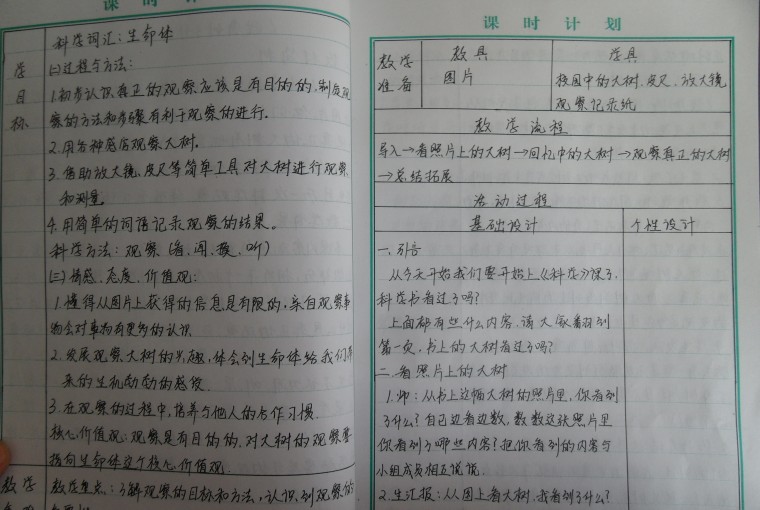 课时计
科学词汇：生命体
学目标
㈡过程与方法：
1.初步认识真正的观察应该是有目的的，制定观
察的方法和步骤有利于观察的进行。
2.用各种感官观察大树。
3.借助放大镜、皮尺等简单工具对大树进行观察
和测量。
4.用简单的词语记录观察的结果。
科学方法：观察（看、闻、摸、听）
㈢情感、态度、价值观：
1.懂得从图片上获得的信息是有限的，亲自观察事
物会对事物有更多的认识
2.发展观察大树的兴趣，体会到生命体给我们
来的生机勃勃的感受
3.在观察的过程中，培养与他人的合作习惯.
核心价值观：观察是有目的的，对大树的观察要
指向生命体这个核心价值观.
教学
教学重点：了解观察的目标和方法，认识到观察的
课时计划
教学准备
教具
学具
图片
校园中的大树、皮尺、放大镜
观察记录纸
教学流程
导入→看照片上的大树→回忆中的大树→观察真正的大树
→总结拓展
活动过程
基础设计
个性设计
一.引言
从今天开始我们要开始上《科学》课了，
科学书看过了吗？
上面都有些什么内容，请大家翻到
第一页，书上的大树看过了吗？
二.看照片上的大树
1.师：从书上这幅大树的照片里，你看到
了什么？自己边看边数，数数这张照片里
你看到了哪些内容？把你看到的内容与
小组成员相互说说.
2.生汇报：从图上看大树，我看到了什么？